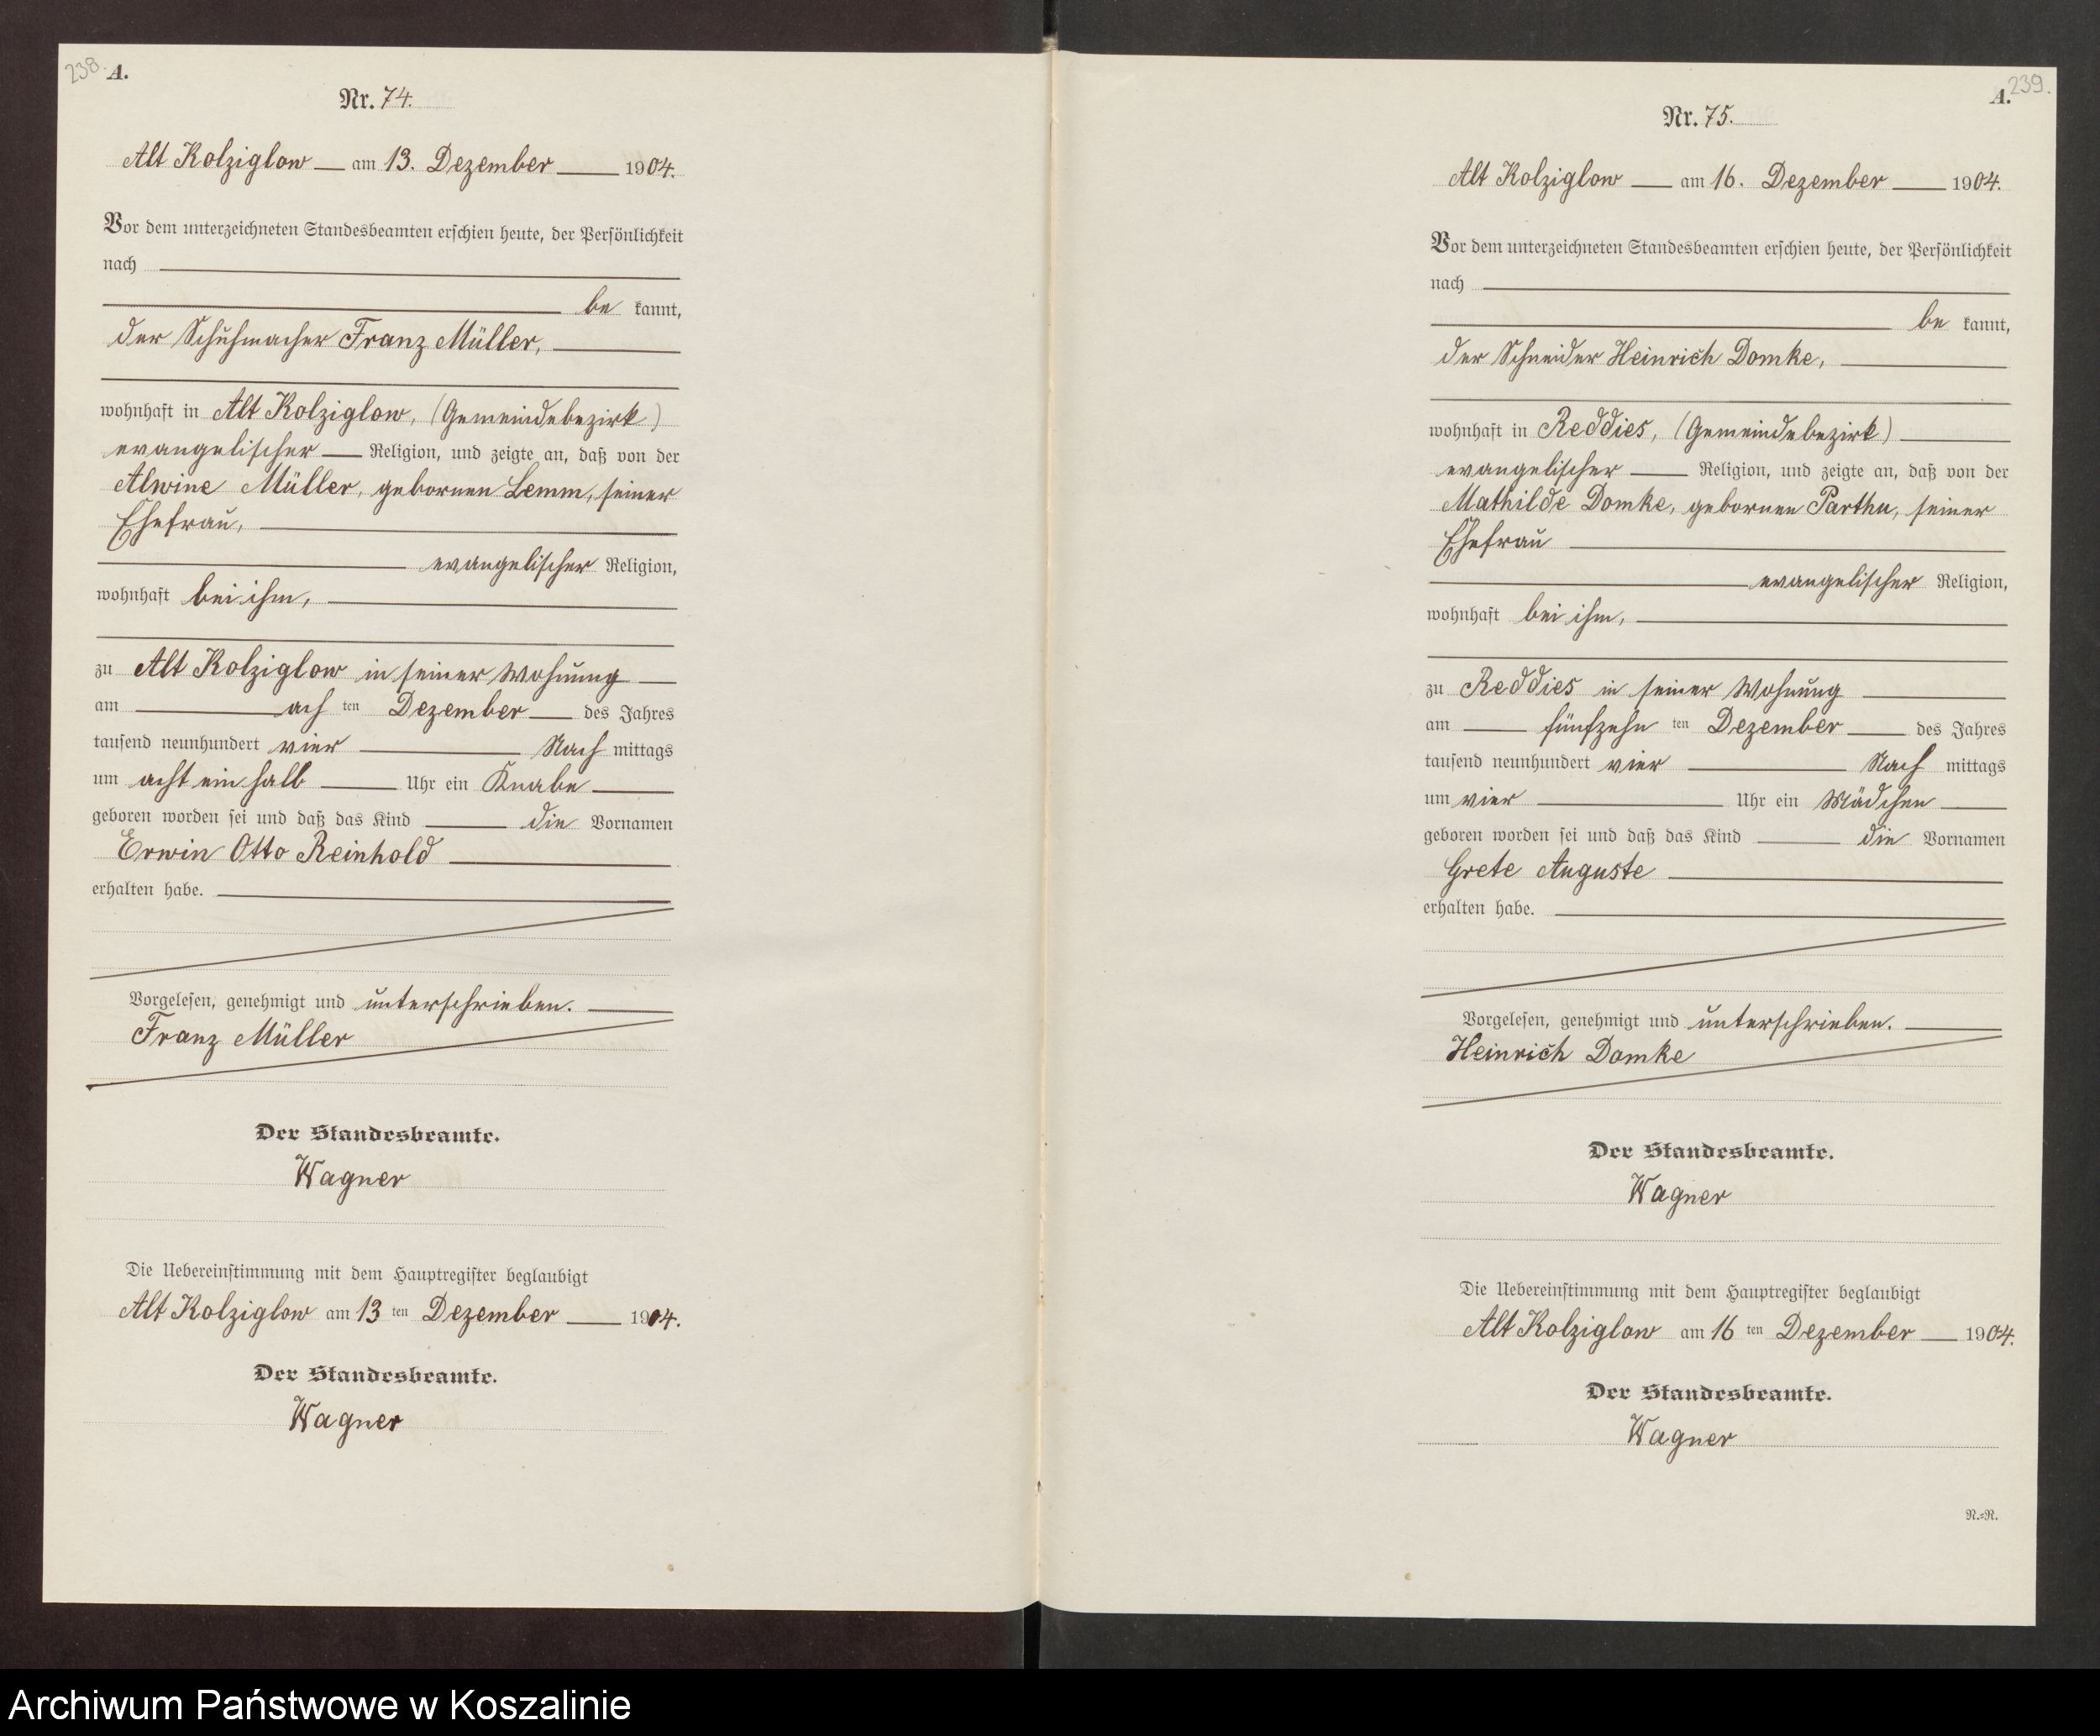 238. A.
Nr. 74.
Alt Kolziglow am 13. Dezember 1904.
Vor dem unterzeichneten Standesbeamten erschien heute, der Persönlichkeit
nach
be kannt,
der Schuhmacher Franz Müller,
wohnhaft in Alt Kolziglow, (Gemeindebezirk)
evangelischer Religion, und zeigte an, daß von der
Alwine Müller, gebornen Lemm, seiner
Ehefrau,
evangelischer Religion,
wohnhaft bei ihm,
zu Alt Kolziglow in seiner Wohnung
am ach ten Dezember des Jahres
tausend neunhundert vier Nach mittags
um acht ein halb Uhr ein Knabe
geboren worden sei und daß das Kind die Vornamen
Erwin Otto Reinhold
erhalten habe.
Vorgelesen, genehmigt und unterschrieben.
Franz Müller
Der Standesbeamte.
Wagner
Die Uebereinstimmung mit dem Hauptregister beglaubigt
Alt Kolziglow am 13 ten Dezember 1904.
Der Standesbeamte.
Wagner
A. 239.
Nr. 75.
Alt Kolziglow am 16. Dezember 1904.
Vor dem unterzeichneten Standesbeamten erschien heute, der Persönlichkeit
nach
be kannt,
der Schneider Heinrich Domke,
wohnhaft in Reddies, (Gemeindebezirk)
evangelischer Religion, und zeigte an, daß von der
Mathilde Domke, gebornen Parthu, seiner
Ehefrau
evangelischer Religion,
wohnhaft bei ihm,
zu Reddies in seiner Wohnung
am fünfzehn ten Dezember des Jahres
tausend neunhundert vier Nach mittags
um vier Uhr ein Mädchen
geboren worden sei und daß das Kind die Vornamen
Grete Auguste
erhalten habe.
Vorgelesen, genehmigt und unterschrieben.
Heinrich Domke
Der Standesbeamte.
Wagner
Die Uebereinstimmung mit dem Hauptregister beglaubigt
Alt Kolziglow am 16 ten Dezember 1904.
Der Standesbeamte.
Wagner
N.=R.
Archiwum Państwowe w Koszalinie